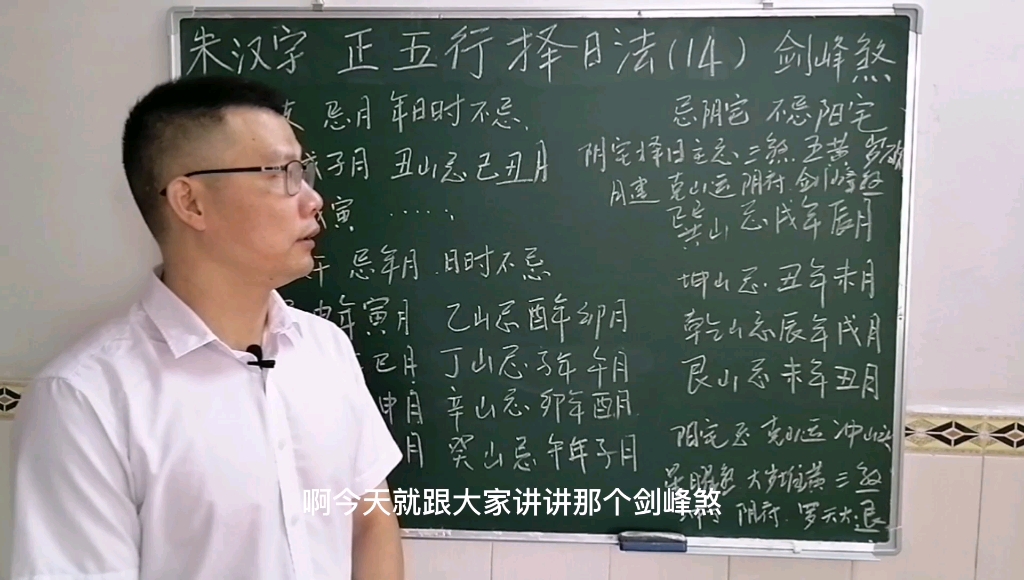 朱汉字 正五行择日法(14) 剑峰煞
忌月 年日时不忌
子月 丑山忌己丑月
寅 ......
忌年月.日时不忌
申年寅月 乙山忌酉年卯月
巳月 丁山忌子年午月
申月 辛山忌卯年酉月
月 癸山忌午年子月
忌阴宅 不忌阳宅
阴宅择日主忌三煞 五黄
月建 克山运 阴府 剑峰煞
巽山忌戌年辰月
坤山忌丑年未月
乾山忌辰年戌月
艮山忌未年丑月
阳宅忌 克山运 冲山
三煞
阴府.罗天大
啊今天就跟大家讲讲那个剑峰煞